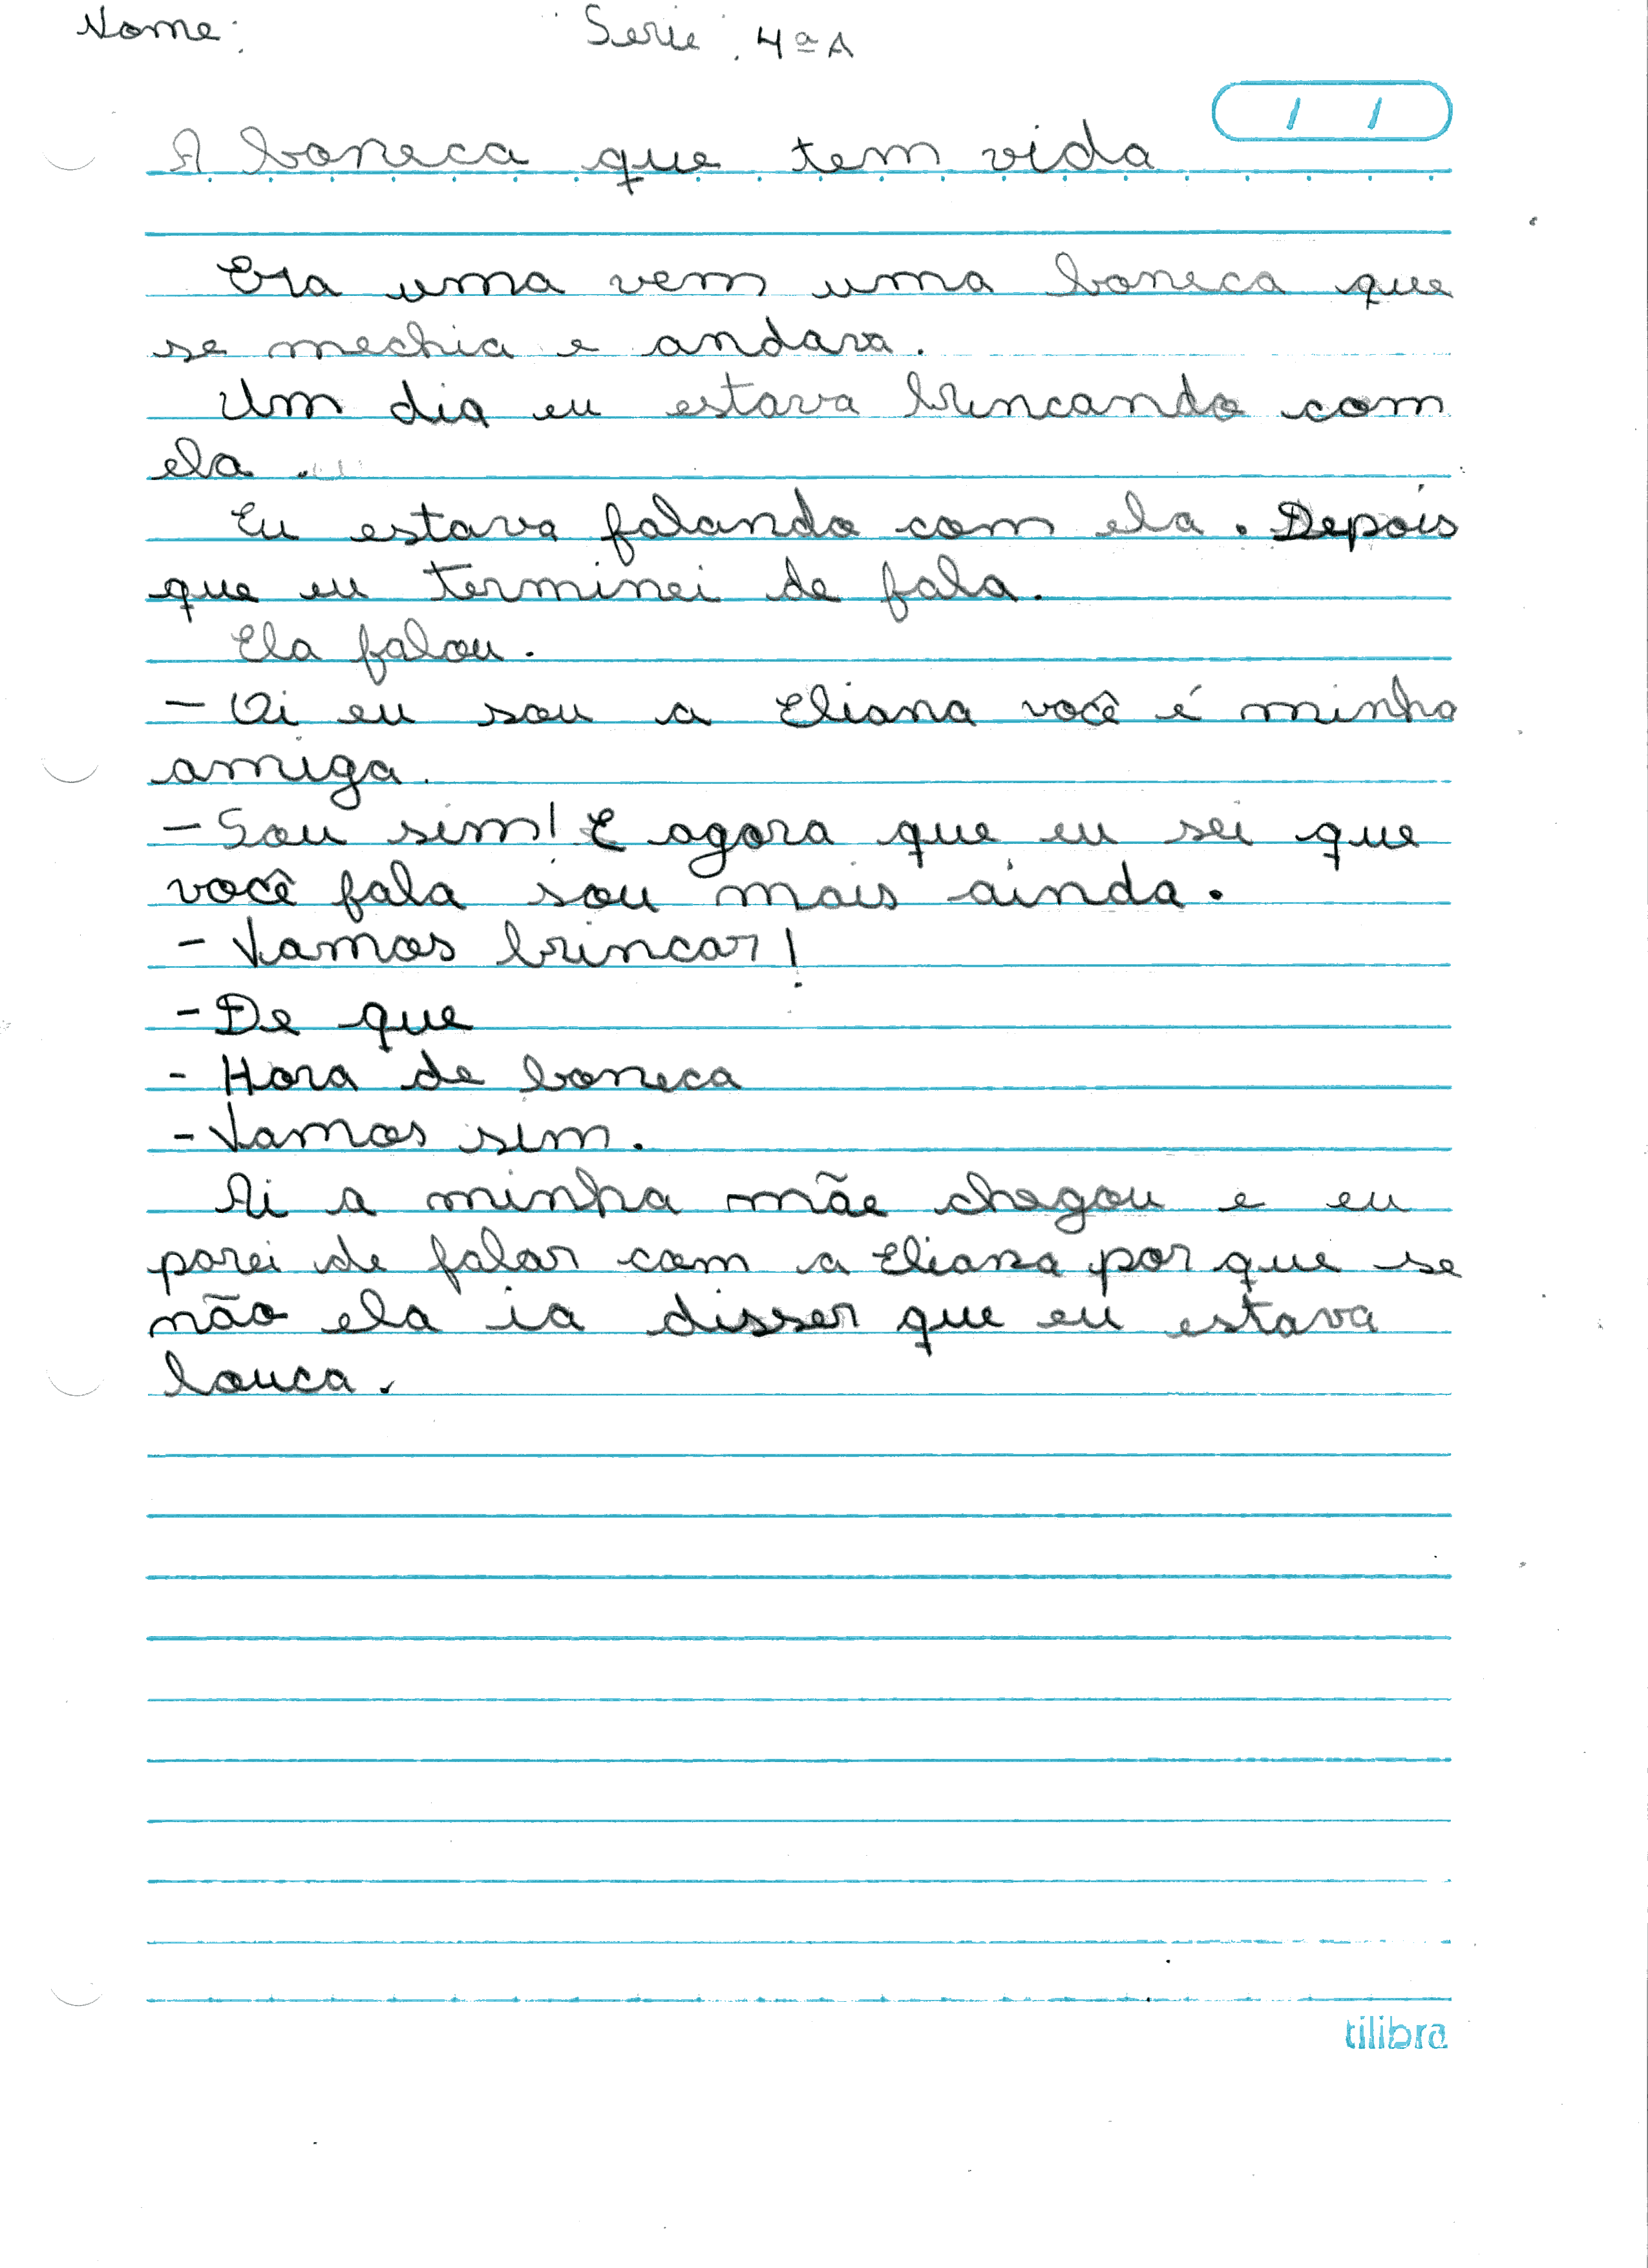 Nome: Serie. 4ª A
A boneca que tem vida
Era uma vem uma boneca que
se mechia e andava.
Um dia eu estava brincando com
ela.
Eu estava falando com ela. Depois
que eu terminei de fala.
Ela falou.
- Oi eu sou a Eliana você é minha
amiga.
- Sou sim! E agora que eu sei que
você fala sou mais ainda.
- Vamos brincar!
- De que
- Hora de boneca
- Vamos sim.
Ai a minha mãe chegou e eu
parei de falar com a Eliana por que se
não ela ia disser que eu estava
louca.
tilibra